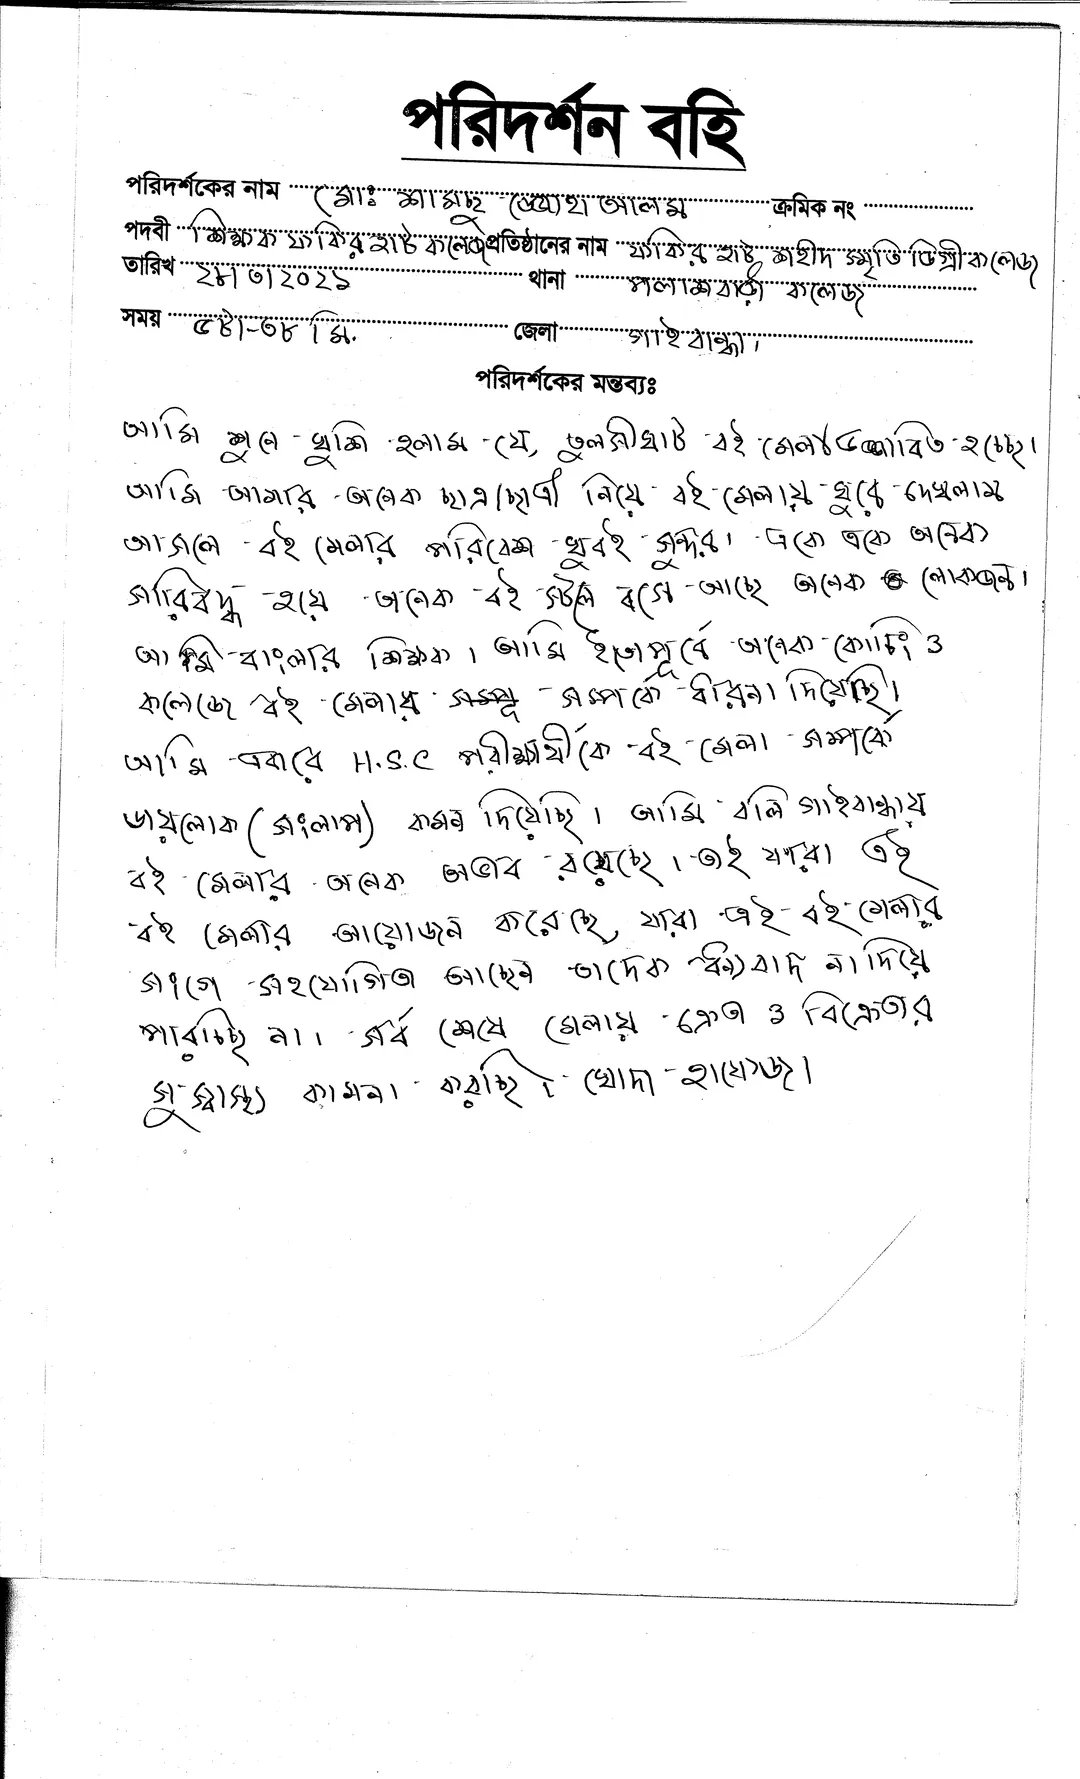 পরিদর্শন বহি
পরিদর্শকের নাম মোঃ শামছু জ্জোহা আলম ক্রমিক নং
পদবী শিক্ষক ফকির হাট কলেজ প্রতিষ্ঠানের নাম ফকির হাট শহীদ স্মৃতি ডিগ্রী কলেজ
তারিখ ২৮/৩/২০২১ থানা পলাশবাড়ী কলেজ
সময় ৫টা-৩৮ মি. জেলা গাইবান্ধা।
পরিদর্শকের মন্তব্যঃ
আমি শুনে খুশি হলাম যে, তুলসীঘাট বই মেলা হচ্ছে।
আমি আমার অনেক ছাত্র/ছাত্রী নিয়ে বই মেলায় ঘুরে দেখলাম
আসলে বই মেলার পরিবেশ খুবই সুন্দর। একে একে অনেক
সারিবদ্ধ হয়ে অনেক বই স্টল বসে আছে অনেক লোকজন।
আমি বাংলার শিক্ষক। আমি ইতোপূর্বে অনেক কোচিং ও
কলেজে বই মেলার সম্পর্কে দিয়েছি।
আমি এবারে H.S.C পরীক্ষার্থীকে বই মেলা সম্পর্কে
ডায়লোক (সংলাপ) কমন দিয়েছি। আমি বলি গাইবান্ধায়
বই মেলার অনেক অভাব রয়েছে। তাই যারা এই
বই মেলার আয়োজন করেছে, যারা এই বই মেলার
সংগে সহযোগিতা আছেন তাদেক ধন্যবাদ না দিয়ে
পারছি না। সর্ব শেষে মেলায় ক্রেতা ও বিক্রেতার
সু স্বাস্থ্য কামনা করছি। খোদা হাফেজ।